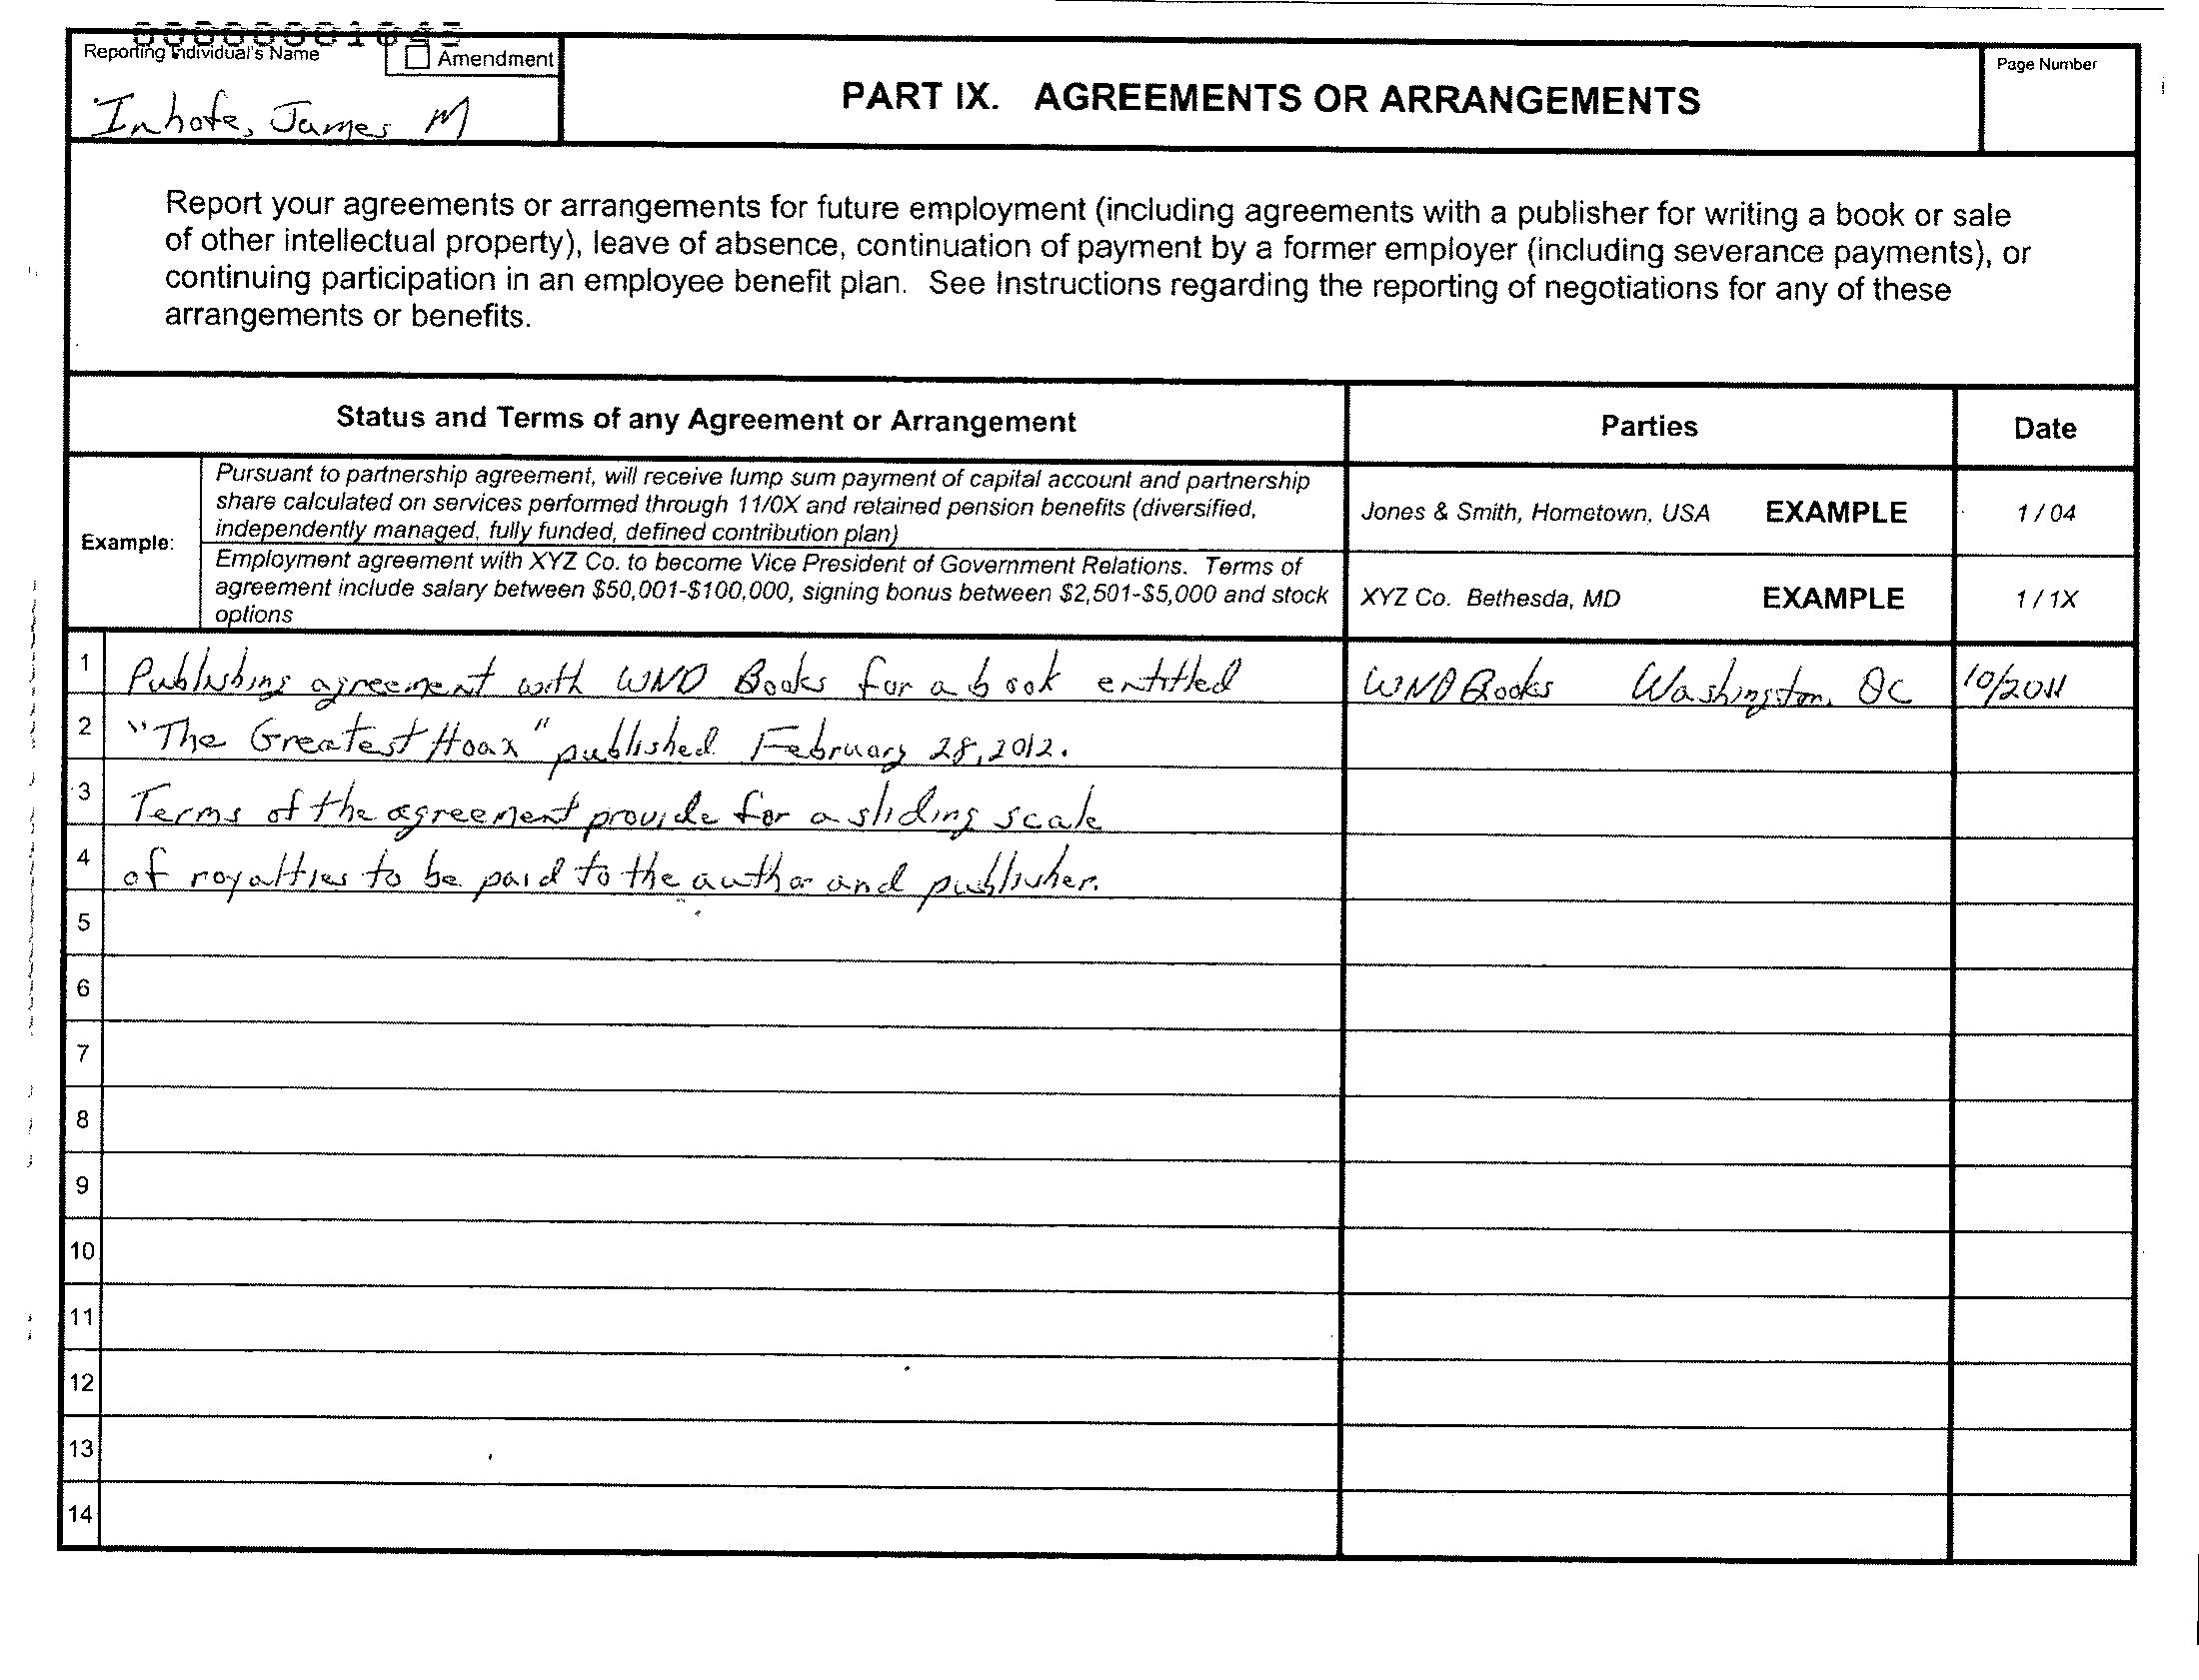 Reporting Individual's Name
Amendment
Inhofe, James M
PART IX. AGREEMENTS OR ARRANGEMENTS
Page Number
Report your agreements or arrangements for future employment (including agreements with a publisher for writing a book or sale
of other intellectual property), leave of absence, continuation of payment by a former employer (including severance payments), or
continuing participation in an employee benefit plan. See Instructions regarding the reporting of negotiations for any of these
arrangements or benefits.
Status and Terms of any Agreement or Arrangement Parties Date
Example:
Pursuant to partnership agreement, will receive lump sum payment of capital account and partnership
share calculated on services performed through 11/0X and retained pension benefits (diversified,
independently managed, fully funded, defined contribution plan)
Jones & Smith, Hometown, USA EXAMPLE 1 / 04
Employment agreement with XYZ Co. to become Vice President of Government Relations. Terms of
agreement include salary between $50,001-$100,000, signing bonus between $2,501-$5,000 and stock
options
XYZ Co. Bethesda, MD EXAMPLE 1 / 1X
1 Publishing agreement with WND Books for a book entitled WND Books Washington, DC 10/2011
2 "The Greatest Hoax" published February 28, 2012.
3 Terms of the agreement provide for a sliding scale
4 of royalties to be paid to the author and publisher.
5
6
7
8
9
10
11
12
13
14